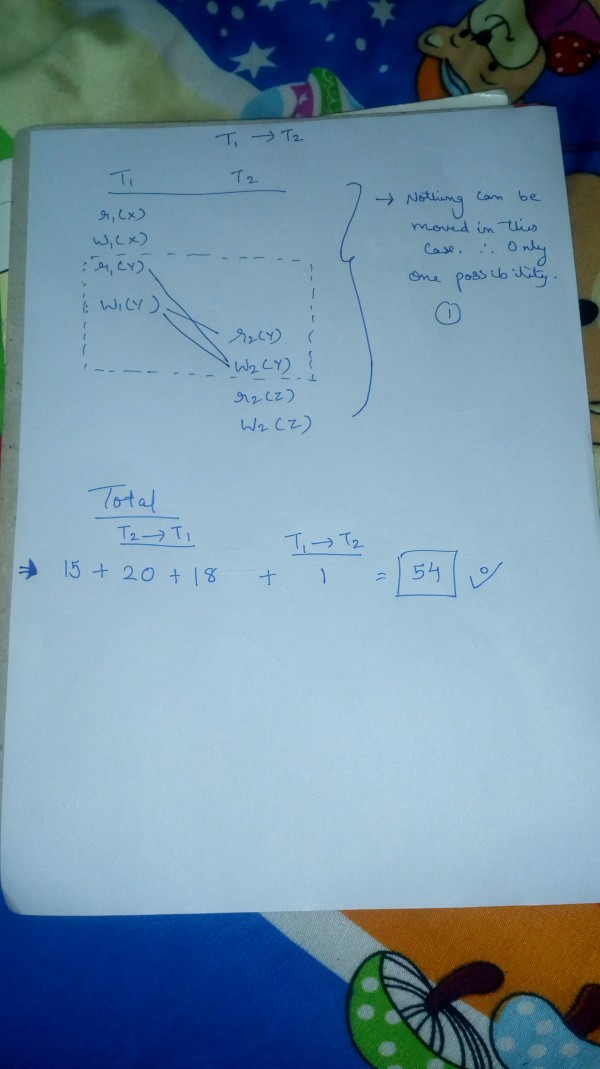 T1 → T2
T1 T2
r1(X)
W1(X)
r1(Y)
W1(Y)
r2(Y)
W2(Y)
r2(Z)
W2(Z)
→ Nothing can be
moved in this
case. ∴ Only
one possibility.
1
Total
T2 → T1
T1 → T2
⇒ 15 + 20 + 18 + 1 = 54